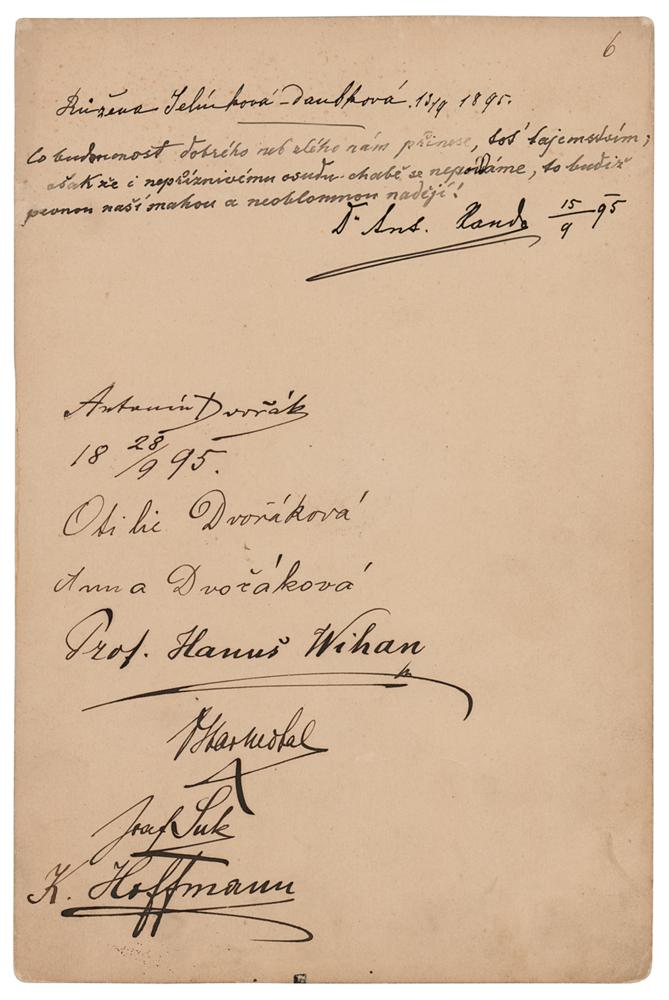 6
Růžena Jelínková-Daubková. 13/9 1895.
Co budoucnost dobrého neb zlého nám přinese, toť tajemstvím;
však že i nepříznivému osudu chabě se nepoddáme, to budiž
pevnou naší snahou a neoblomnou nadějí!
Dr Ant. Randa 15/9 95
Antonín Dvořák
18 28/9 95.
Otilie Dvořáková
Anna Dvořáková
Prof. Hanuš Wihan
Josef Suk
K. Hoffmann